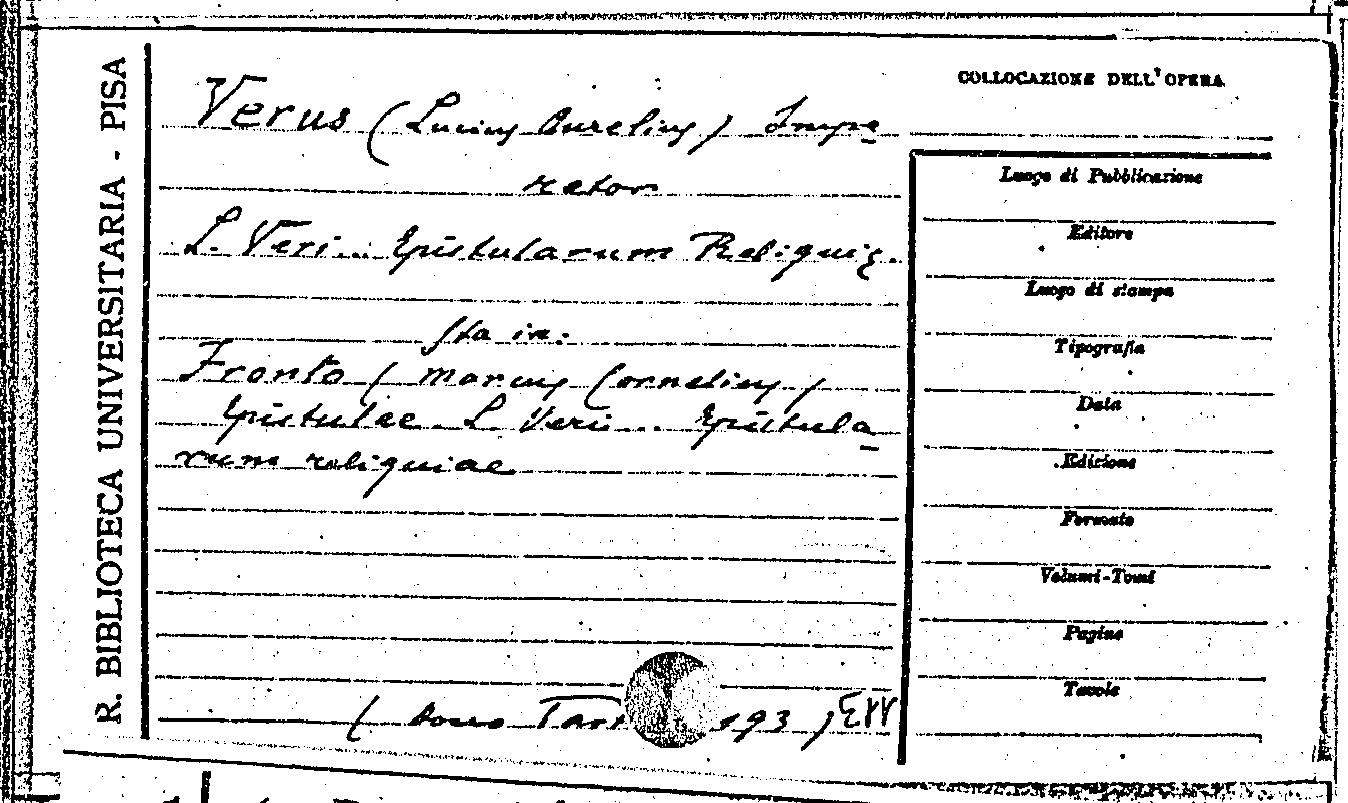 R. BIBLIOTECA UNIVERSITARIA - PISA
COLLOCAZIONE DELL'OPERA
Verus (Lucius Aurelius) Impe-
rator
L. Veri... Epistularum Reliquiæ.
Sta in:
Fronto (Marcus Cornelius)
Epistulae L. Veri... Epistula-
rum reliquiae
( Dono 193 )
Luogo di Pubblicazione
Editore
Luogo di stampa
Tipografia
Data
Edizione
Formato
Volumi-Tomi
Pagine
Tavole